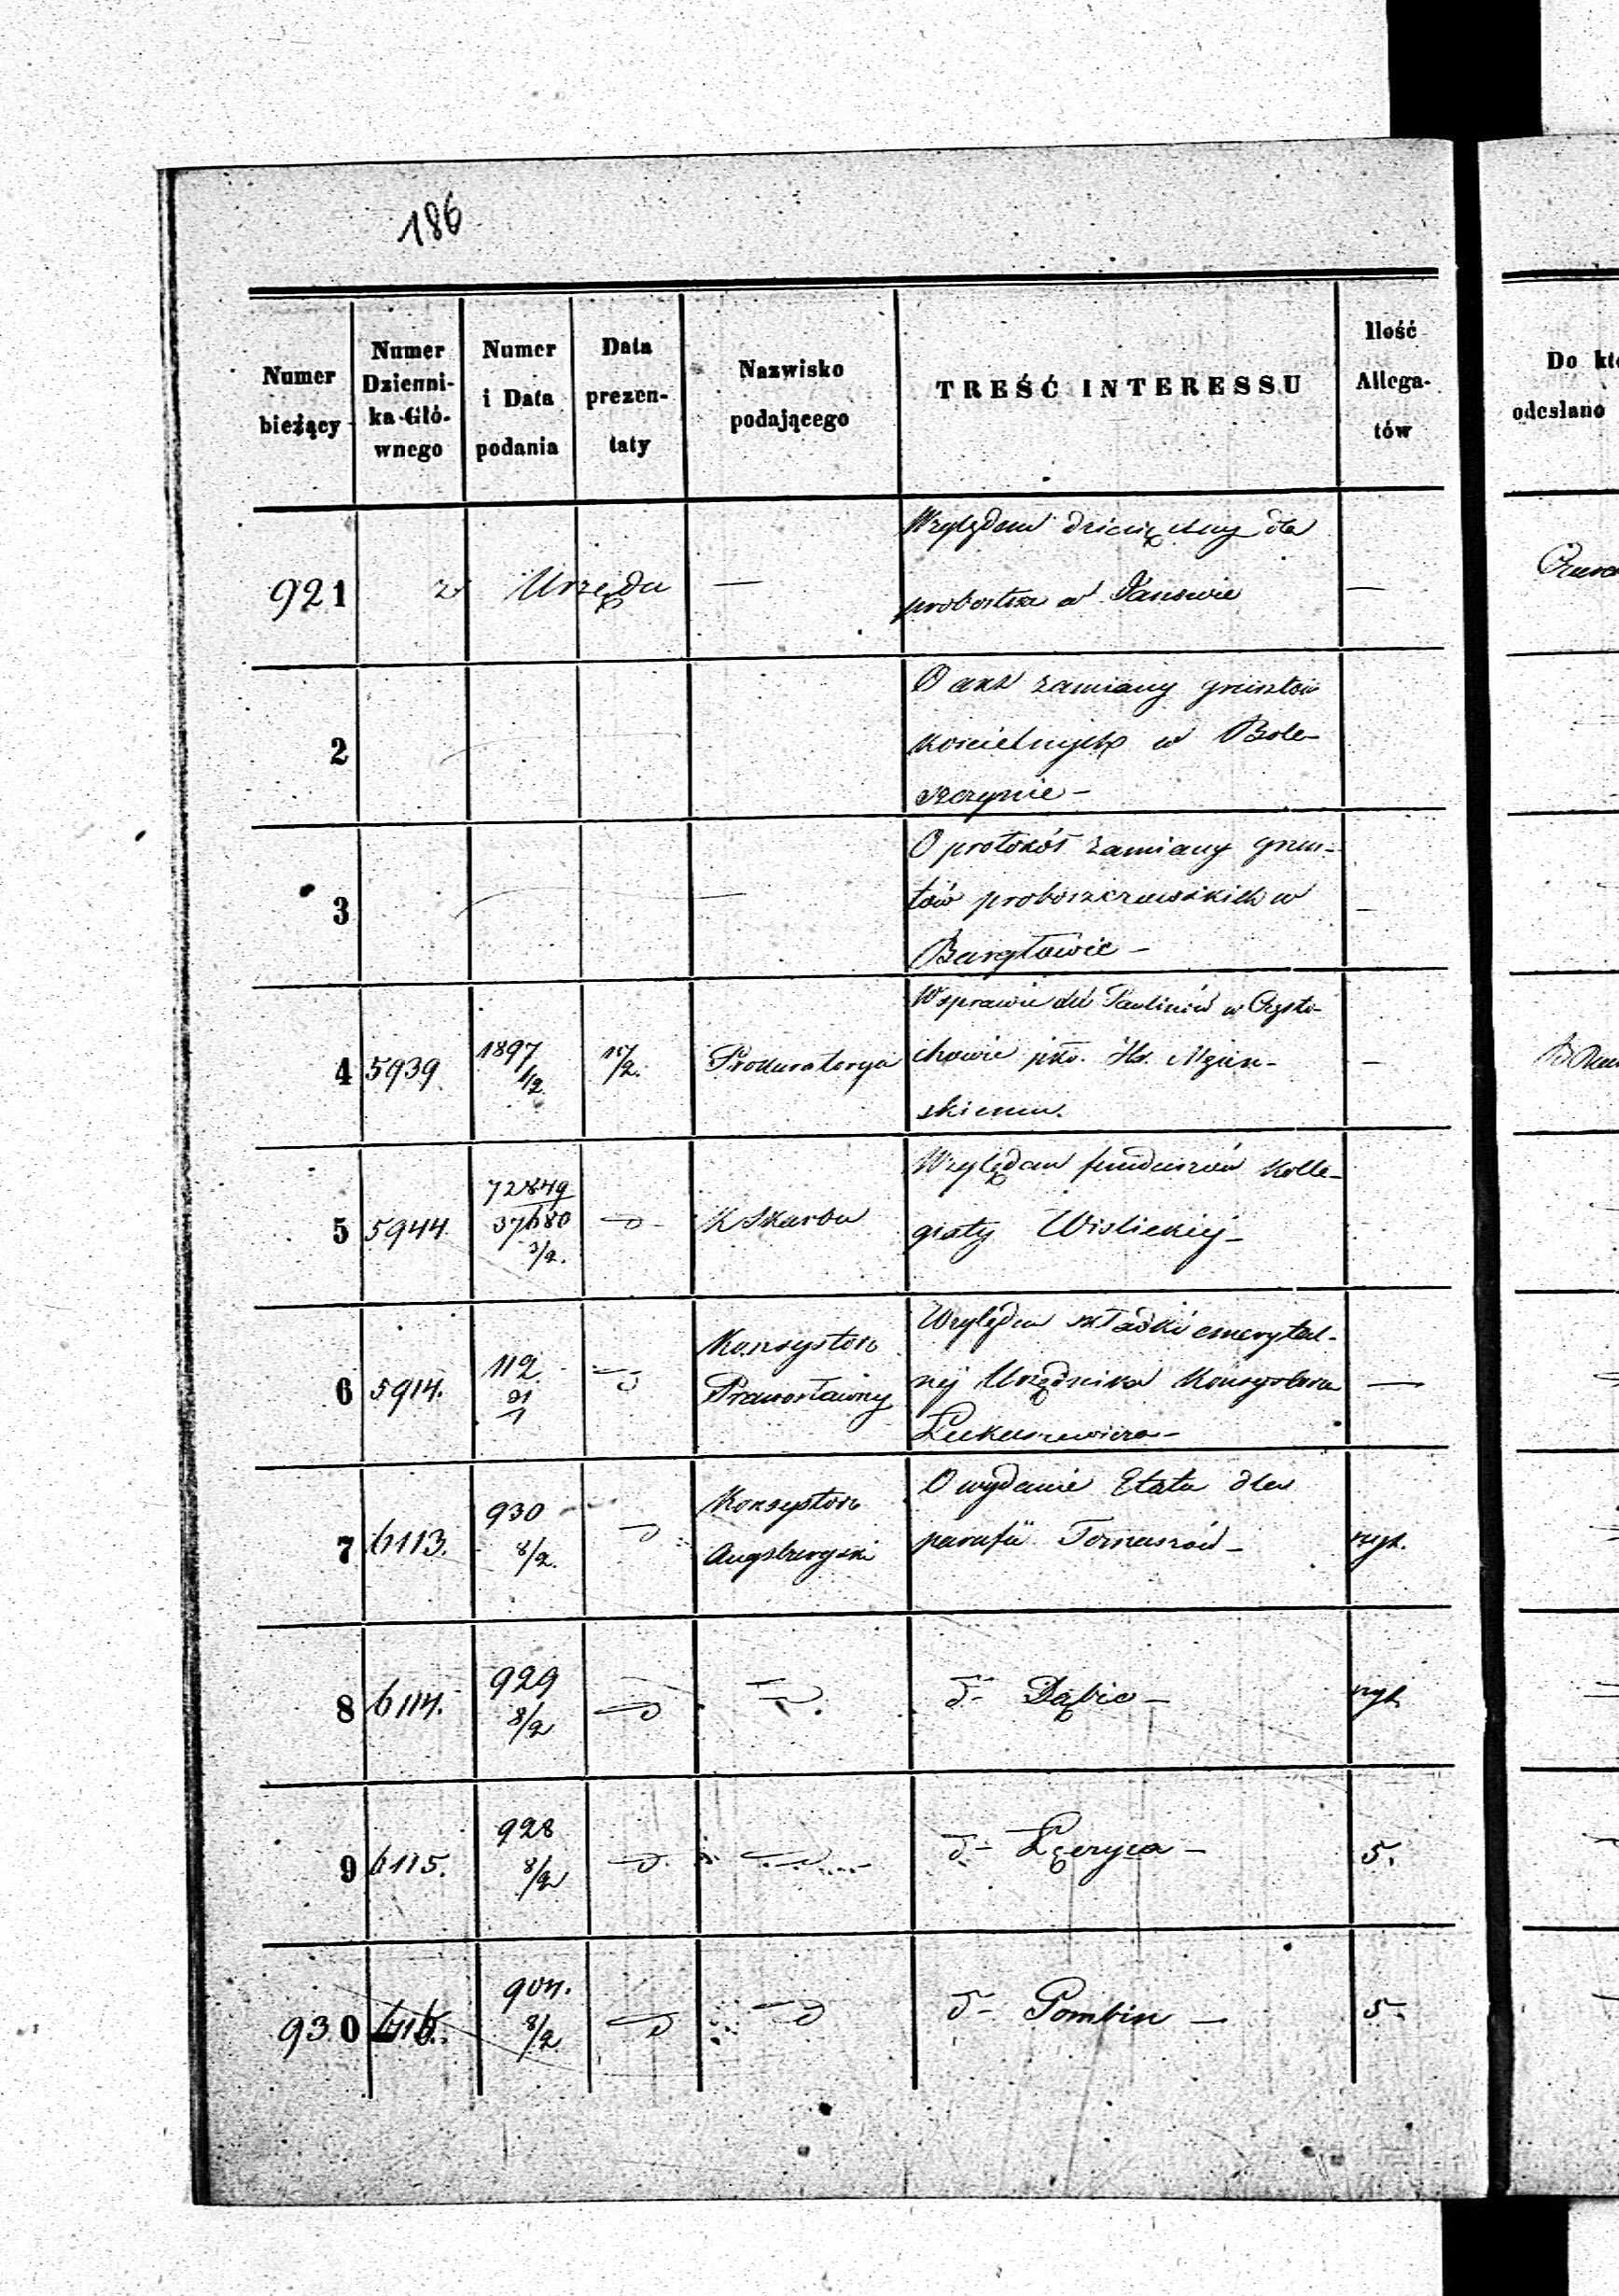 186
Numer bieżący
Numer Dzienni- ka Głó- wnego
Numer i Data podania
Data prezen- taty
Nazwisko podającego
TREŚĆ INTERESSU
Ilość Allega- tów
Do
odesłano
921 z Urzędu —
Względem dziesięciny dla
probostwa w Janowie —
2
O akt zamiany gruntów
kościelnych w Bole-
szczynie —
3 —
O protokół zamiany grun-
tów proboszczowskich w
Bargłowie — —
4 5939 1897 1/2 17/2. Prokuratorya
W sprawie XX Paulinów w Często-
chowie pko. Hr. Męciń-
skiemu. —
5 5944 72849 37680 3/2. K Skarbu
Względem funduszów Kolle-
giaty Wiślickiej —
6 5914. 112 31 1 Konsystorz Prawosławny
Względem składki emerytal-
nej Urzędnika Konsystorza
Łukaszewicza — —
7 6113. 930 8/2. Konsystorz Augsburgski
O wydanie Etatu dla
parafii Tomaszów —
8 6114. 929 8/2
d- Dąbie —
9 6115. 928 8/2
d- Łęczyca — 5.
930 904. 8/2
d- Pombin — 5.